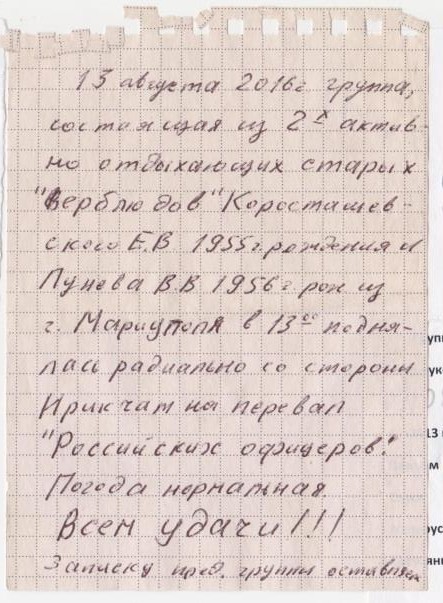 13 августа 2016г группа,
состоящая из 2х актив-
но отдыхающих старых
"верблюдов" Коросташев-
ского Е.В 1955г.рождения и
Лунева В.В 1956г рож из
г. Мариуполя в 13⁰⁰ подня-
лась радиально со стороны
Ирикчат на перевал
"Российских офицеров."
Погода нормальная.
Всем удачи!!!
Записку пред. группы оставляем